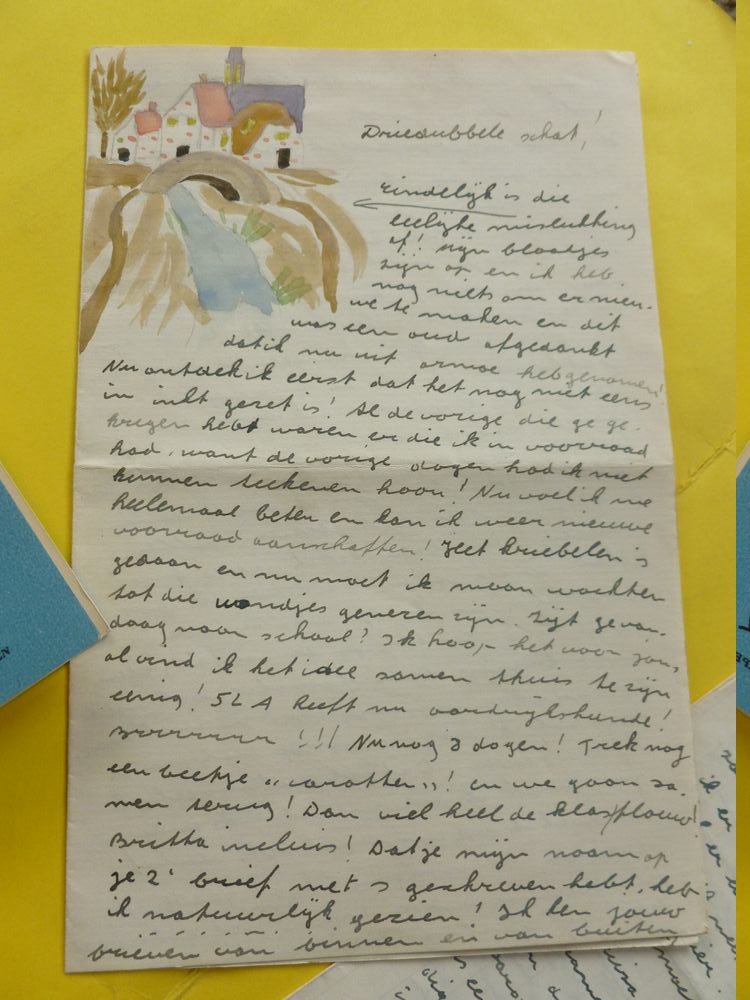 Driedubbele schat!
eindelijk is die
leelijke mislukking
af! mijn blaadjes
zijn op en ik heb
nog niets om er nieu-
we te maken en dit
was een oud afgedankt
dat ik nu uit armoe heb genomen!
Nu ontdek ik eerst dat het nog niet eens
in inkt gezet is! Al de vorige die ge ge-
kregen hebt waren er die ik in voorraad
had, want de vorige dagen had ik niet
kunnen teekenen hoor! Nu voel ik me
heelemaal beter en kan ik weer nieuwe
voorraad aanschaffen! Het kriebelen is
gedaan en nu moet ik maar wachten
tot die wondjes genezen zijn. Zijt ge van-
daag naar school? Ik hoop het voor jou
al vind ik het idee samen thuis te zijn
eenig! 5L A heeft nu aardrijkskunde!
Brrrrrrr !!! Nu nog 3 dagen! Trek nog
een beetje „carotten"! en we gaan sa-
men terug! Dan viel heel de klas flauw!
Britta incluis! Dat je mijn naam op
je 2e brief met s geschreven hebt, heb
ik natuurlijk gezien! Ik ken jouw
brieven van binnen en van buiten